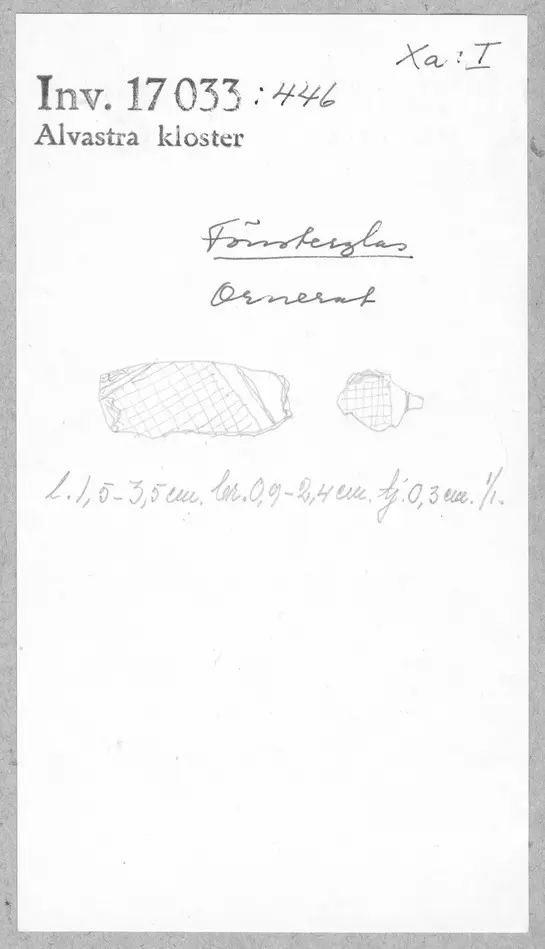 Xa: I
Inv. 17 033 : 446
Alvastra kloster
Fönsterglas
Ornerat
l. 1,5-3,5 cm. br. 0,9-2,4 cm. tj. 0,3 cm. 1/1.